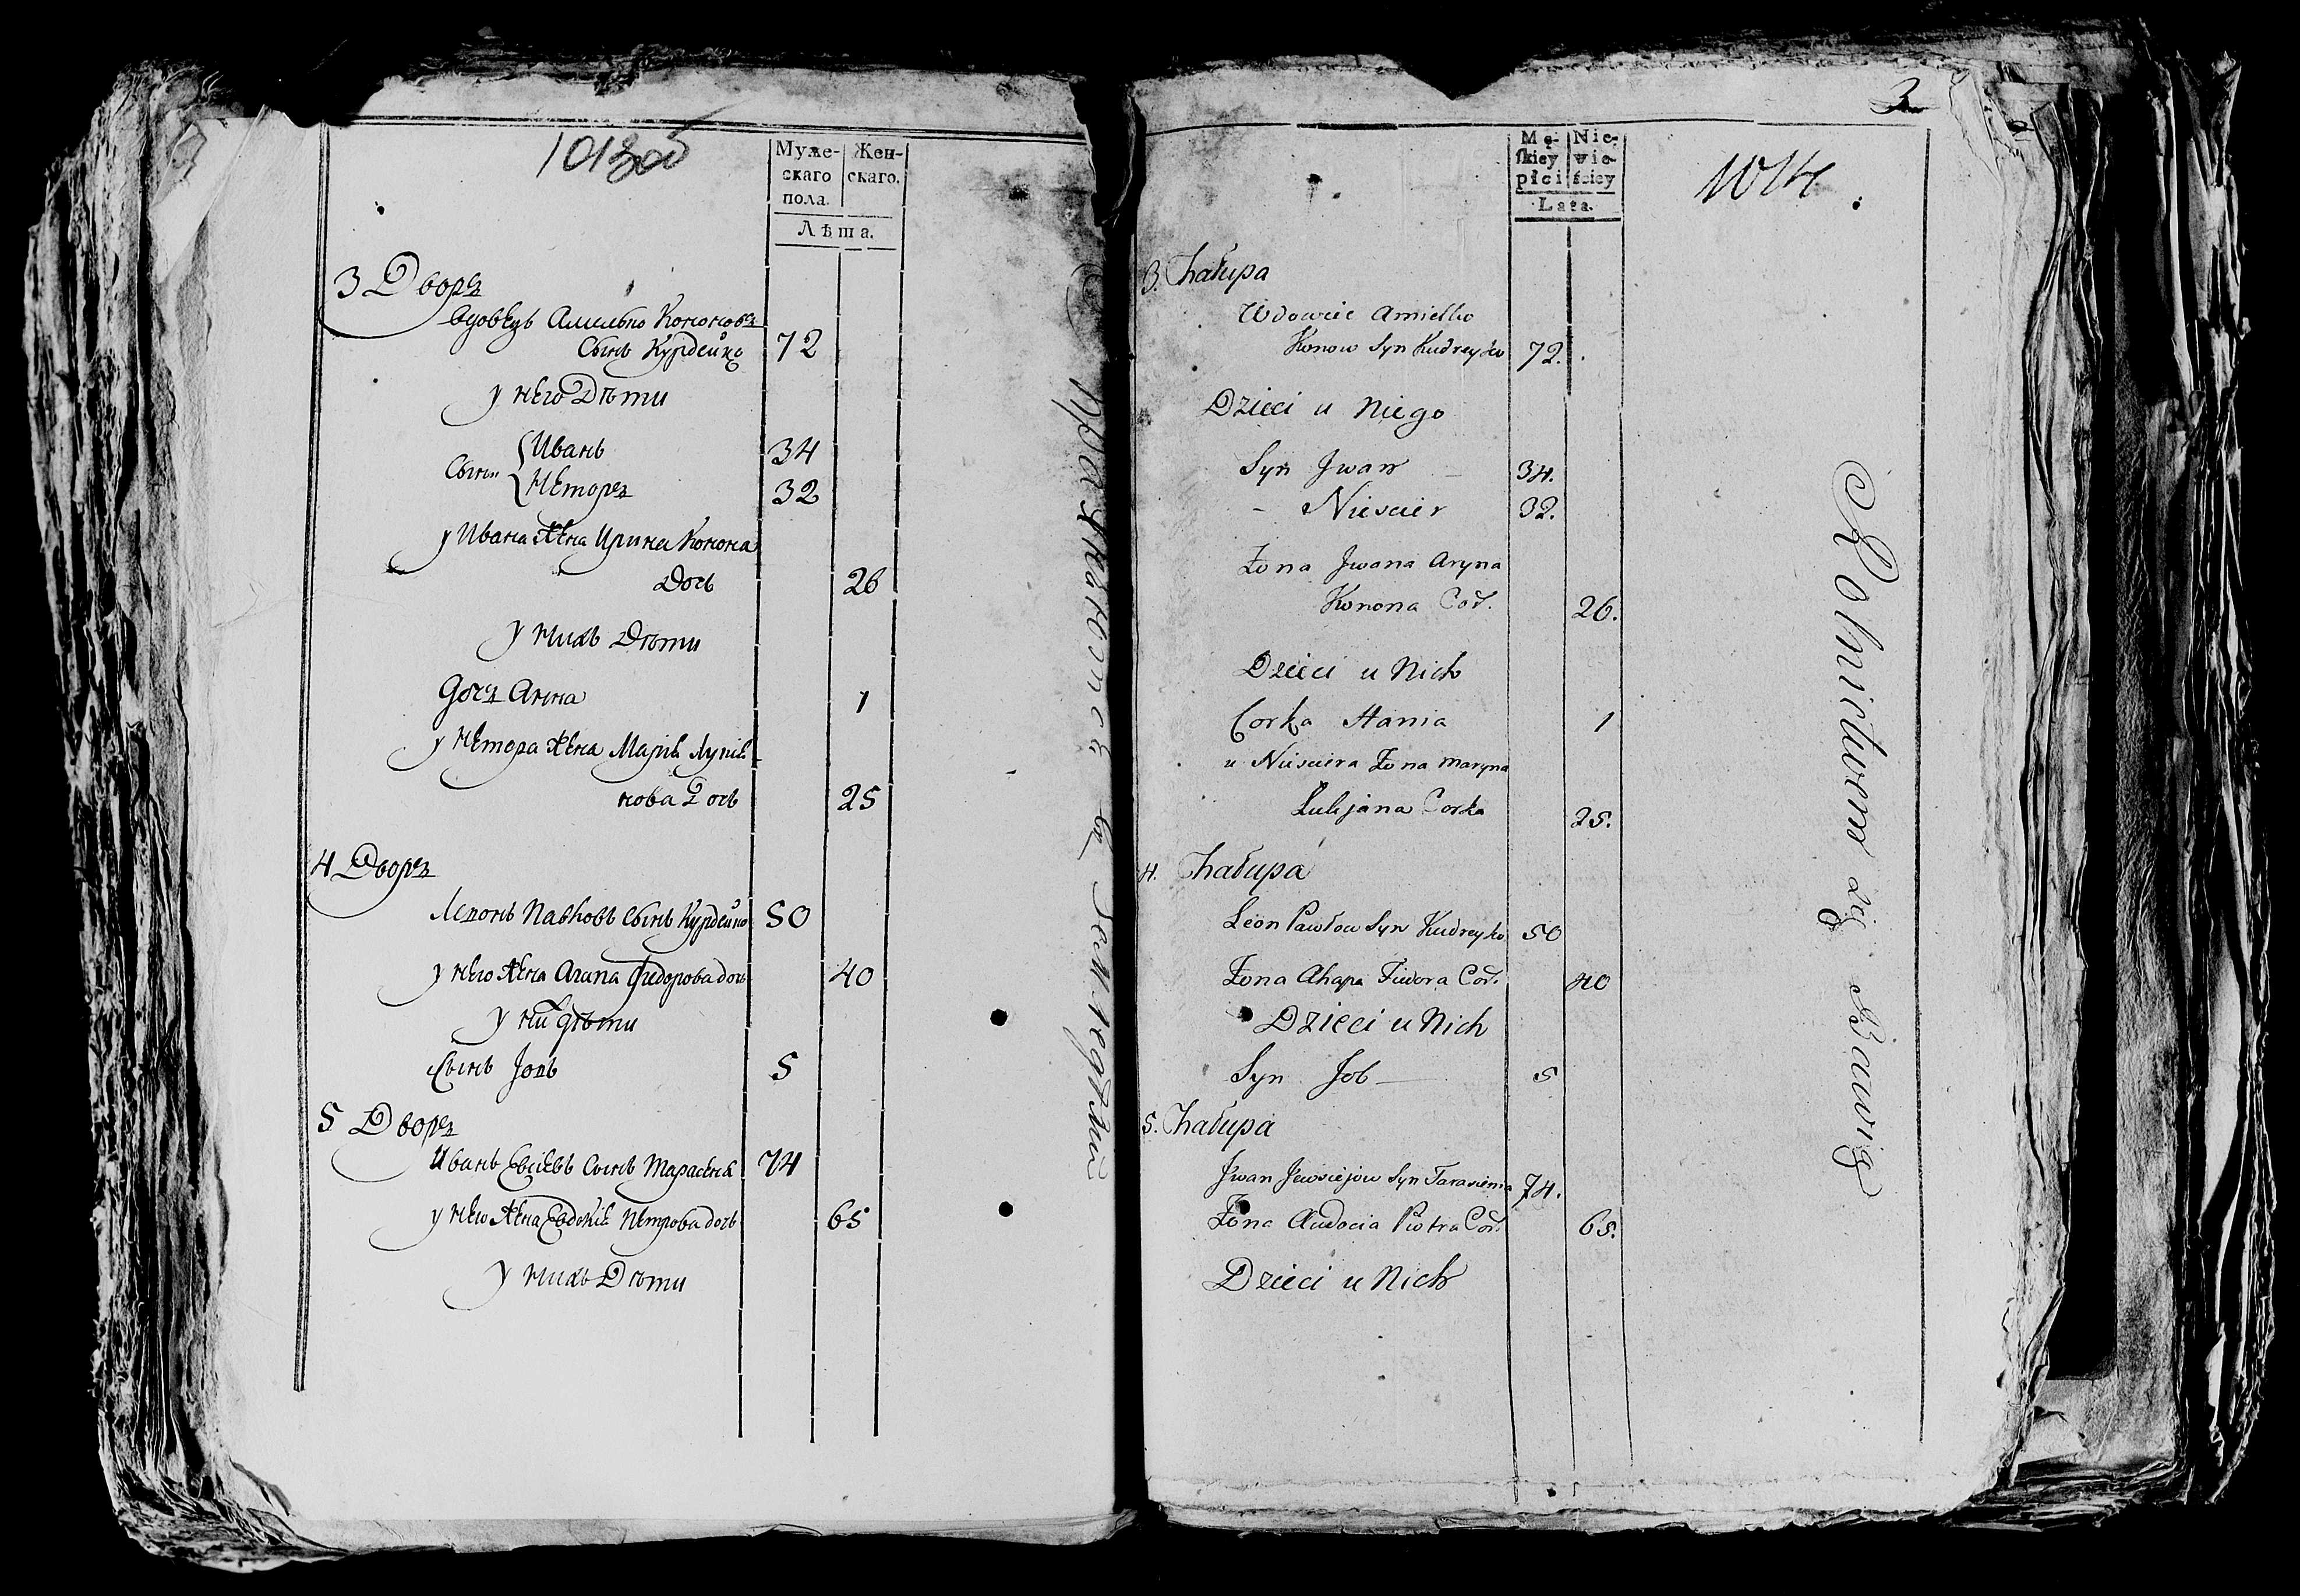 1013об
Муже-
скаго
пола.
Жен-
скаго.
Лѣта.
3 Дворъ
Вдовецъ Амилько Кононовъ
Сынъ Курдейко 72
у него Дѣти
Сыны Иванъ 34
Нестеръ 32
у Ивана жена Ирина Конона
Дочь 26
у нихъ Дѣти
Дочь Анна 1
у Нестера жена Марія Лукія-
нова Дочь 25
4 Дворъ
Леонъ Павловъ Сынъ Курдейко 50
у него жена Агапа Фидорова дочь 40
у них дѣти
Сынъ Іовъ 5
5 Дворъ
Иванъ Евсіевъ Сынъ Тарасеня 74
у него жена Евдокія Петрова дочь 65
у нихъ Дѣти
3
Mę-
skiey
płci
Nie-
wie-
ściey
Lata.
1014
3. Chałupa
Wdowiec Amielko
Konow Syn Kudreyko 72.
Dzieci u Niego
Syn Jwan 34.
- Niescier 32.
Żona Jwana Aryna
Konona Cor. 26.
Dzieci u Nich
Corka Hania 1
u Niesciera Żona Maryna
Lukjana Corka 25.
4. Chałupa
Leon Pawłow Syn Kudreyko 50
Żona Ahapa Fiedora Cor. 40
Dzieci u Nich
Syn Job 5
5. Chałupa
Jwan Jewsiejow Syn Tarasienia 74.
Żona Audocia Piotra Cor. 65.
Dzieci u Nich